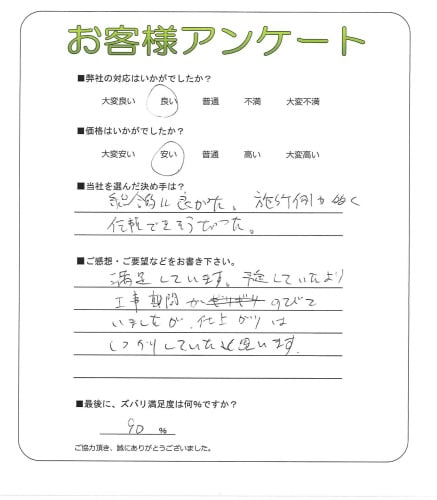 お客様アンケート
■弊社の対応はいかがでしたか？
大変良い 良い 普通 不満 大変不満
■価格はいかがでしたか？
大変安い 安い 普通 高い 大変高い
■当社を選んだ決め手は？
総合的に良かった。施行例も多く
信頼できそうだった。
■ご感想・ご要望などをお書き下さい。
満足しています。予定していたより
工事期間が のびて
いましたが、仕上がりは
しっかりしていたと思います。
■最後に、ズバリ満足度は何％ですか？
90 ％
ご協力頂き、誠にありがとうございました。